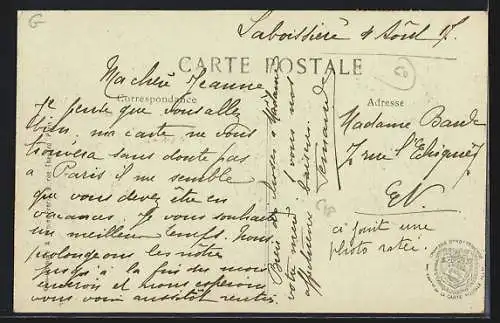 Laboissière 4 Août 15
CARTE POSTALE
Correspondance
Adresse
Ma chère Jeanne
Je pense que vous allez
bien. ma carte ne vous
trouvera sans doute pas
à Paris il me semble
que vous devez être en
vacances. Je vous souhaite
un meilleur temps. Nous
prolongeons les nôtres
jusqu'à la fin du mois
environ et nous espérons
vous voir aussitôt rentrés.
Bien des choses à Madame
votre mère à vous nos
affectueux baisers
Fernande
Madame Baude
7 rue l'Echiquier
EV.
ci joint une
photo ratée.